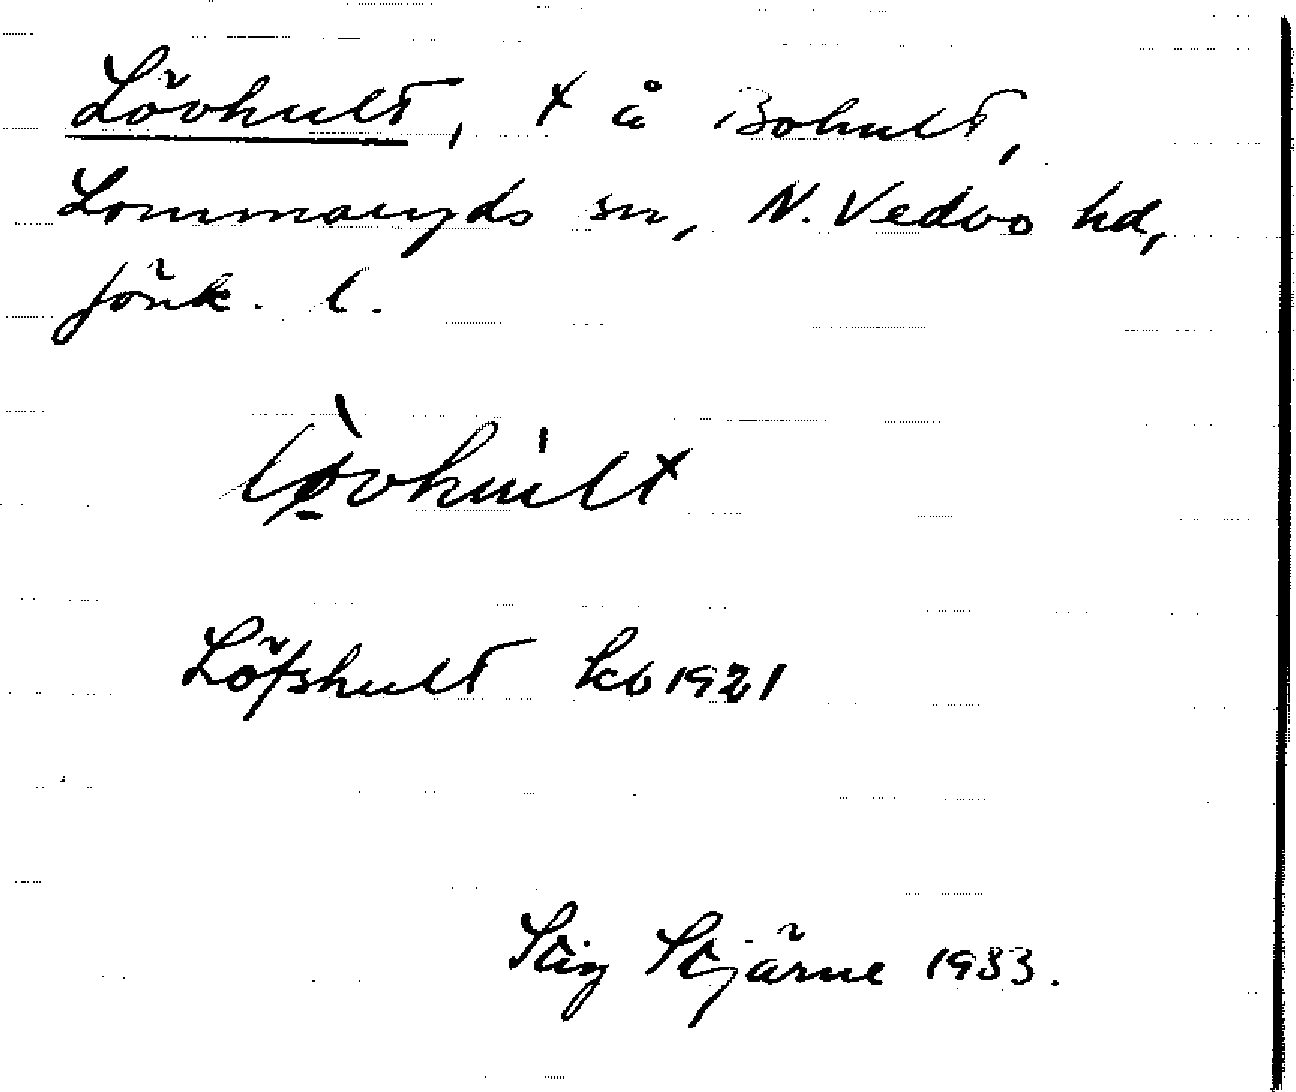 Lövhult, t å Bohult,
Lommaryds sn, N. Vedbo hd,
Jönk. l.
Löfshult kb 1921
Stig Stjärne 1933.